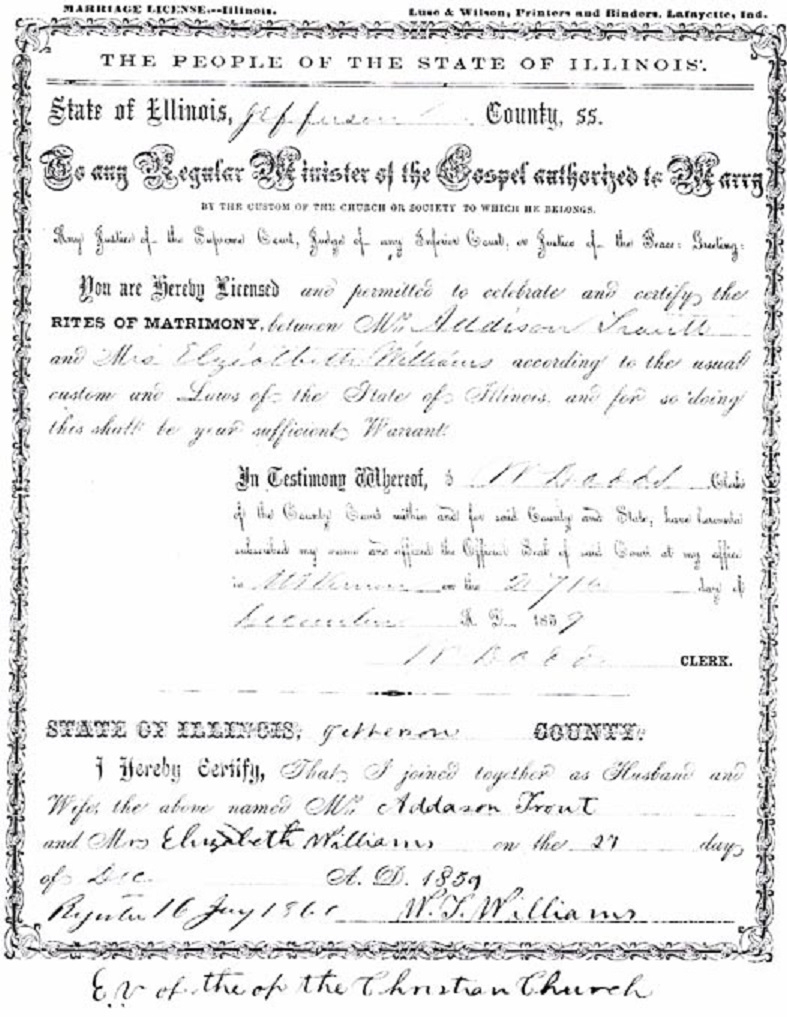 MARRIAGE LICENSE.--Illinois. Luse & Wilson, Printers and Binders, Lafayette, Ind.
THE PEOPLE OF THE STATE OF ILLINOIS.
State of Illinois, Jefferson County, ss.
To any Regular Minister of the Gospel authorized to Marry
BY THE CUSTOM OF THE CHURCH OR SOCIETY TO WHICH HE BELONGS.
Any Justice of the Supreme Court, Judge of any Inferior Court, or Justice of the Peace: Greeting:
You are Hereby Licensed and permitted to celebrate and certify the
RITES OF MATRIMONY, between Mr. Addison Trautt
and Mrs Elyziabbeth Williams according to the usual
custom and Laws of the State of Illinois. and for so doing
this shall be your sufficient Warrant.
In Testimony Whereof, I W Dodds Clerk
of the County Court within and for said County and State, have hereunto
subscribed my name and affixed the Official Seal of said Court at my office
in Mt Vernon on the 27th day of
December A. D. 1859
W Dodds CLERK.
STATE OF ILLINOIS, Jefferson COUNTY.
I Hereby Certify, That I joined together as Husband and
Wife, the above named Mr. Addason Trout
and Mrs Elizabeth Williams on the 27 day
of Dec. A. D. 1859
16 W. T. Williams
of the of the Christian Church